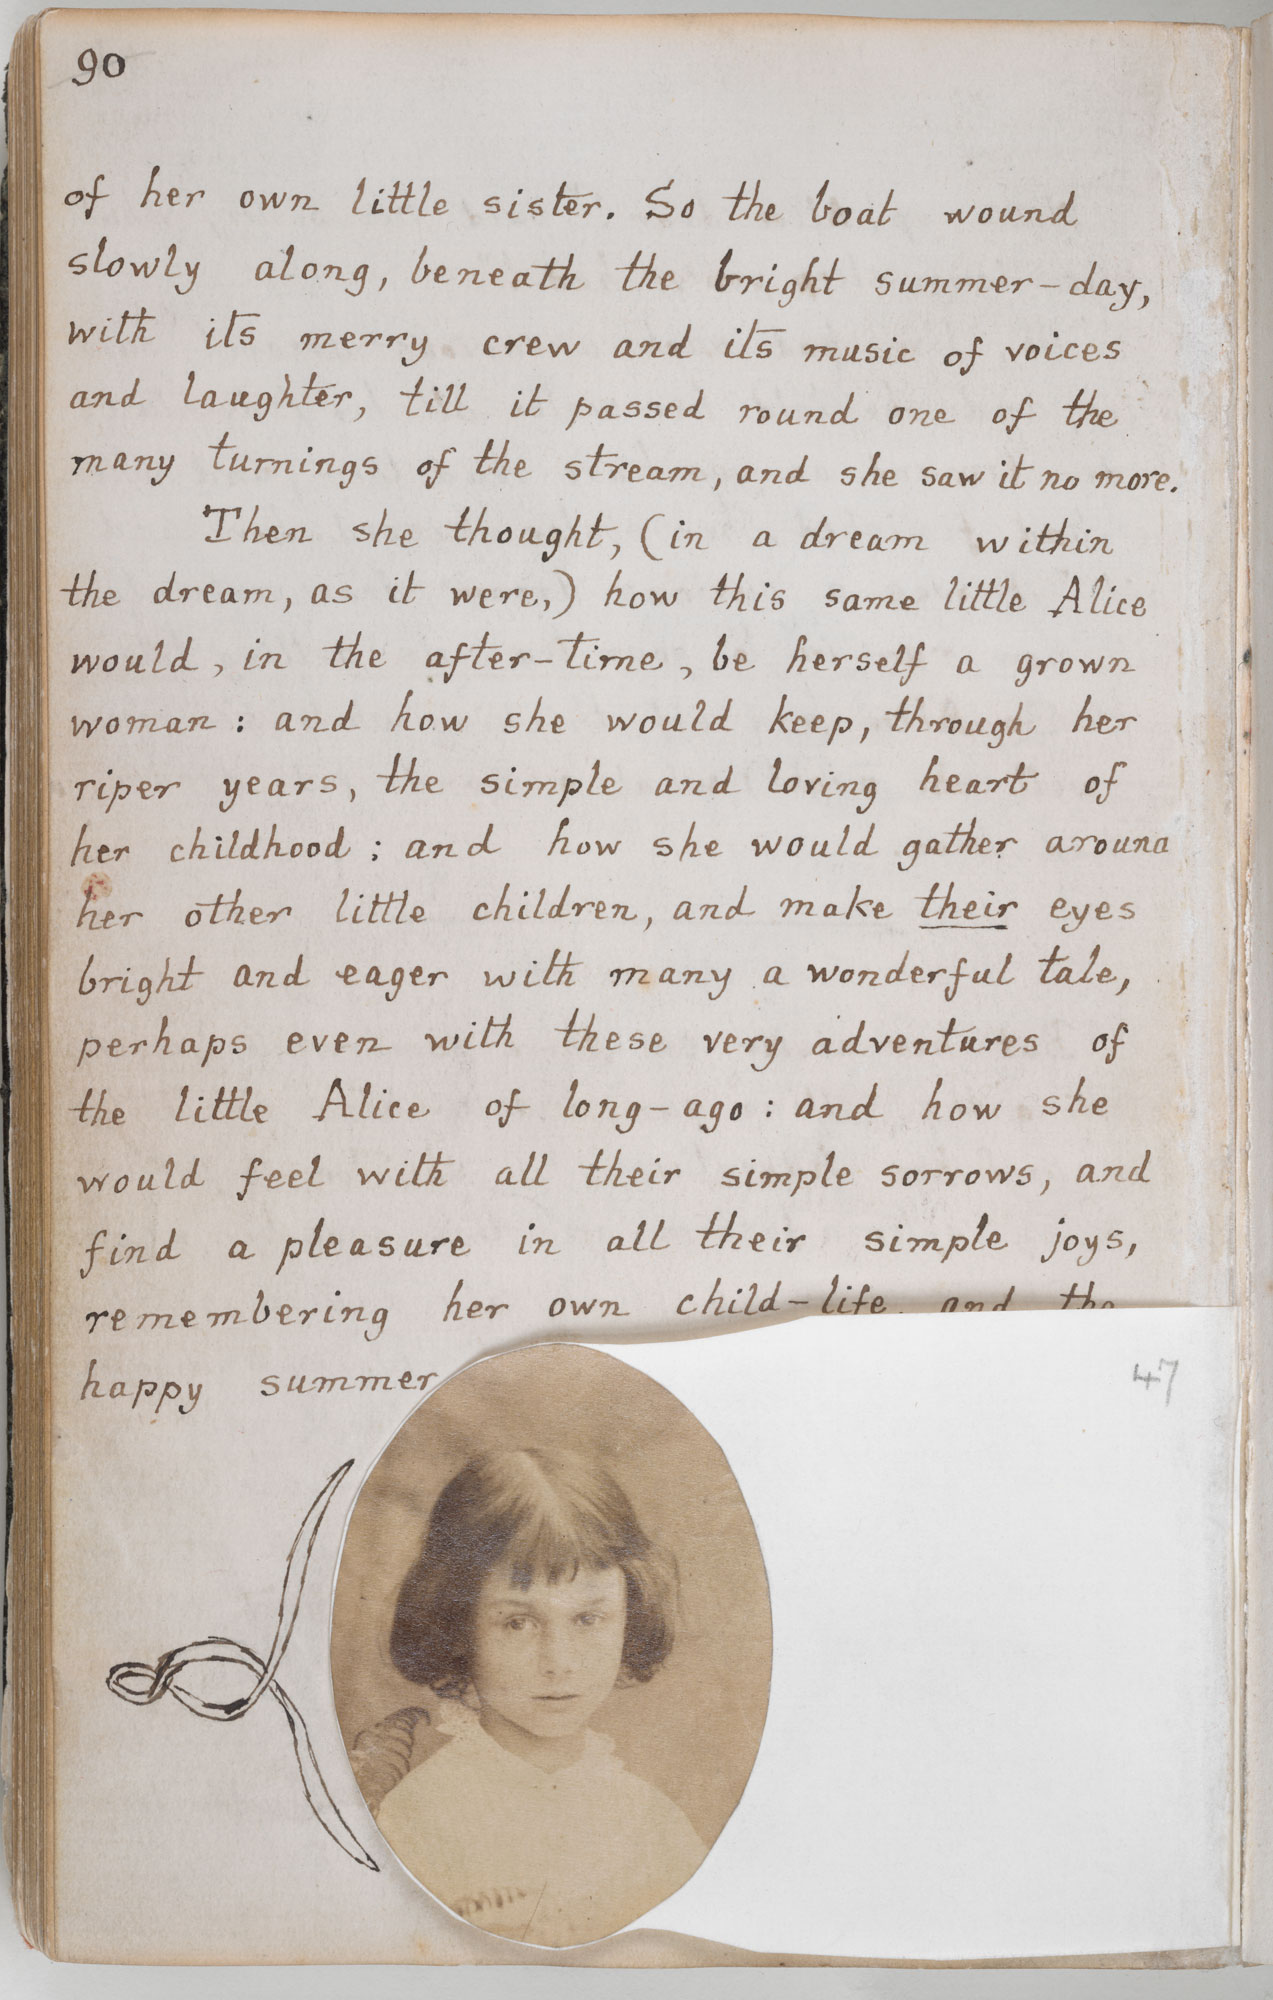 90
of her own little sister. So the boat wound
slowly along, beneath the bright summer-day,
with its merry crew and its music of voices
and laughter, till it passed round one of the
many turnings of the stream, and she saw it no more.
Then she thought, (in a dream within
the dream, as it were,) how this same little Alice
would, in the after-time, be herself a grown
woman: and how she would keep, through her
riper years, the simple and loving heart of
her childhood: and how she would gather around
her other little children, and make their eyes
bright and eager with many a wonderful tale,
perhaps even with these very adventures of
the little Alice of long-ago: and how she
would feel with all their simple sorrows, and
find a pleasure in all their simple joys,
remembering her own child-life, and the
happy summer
47